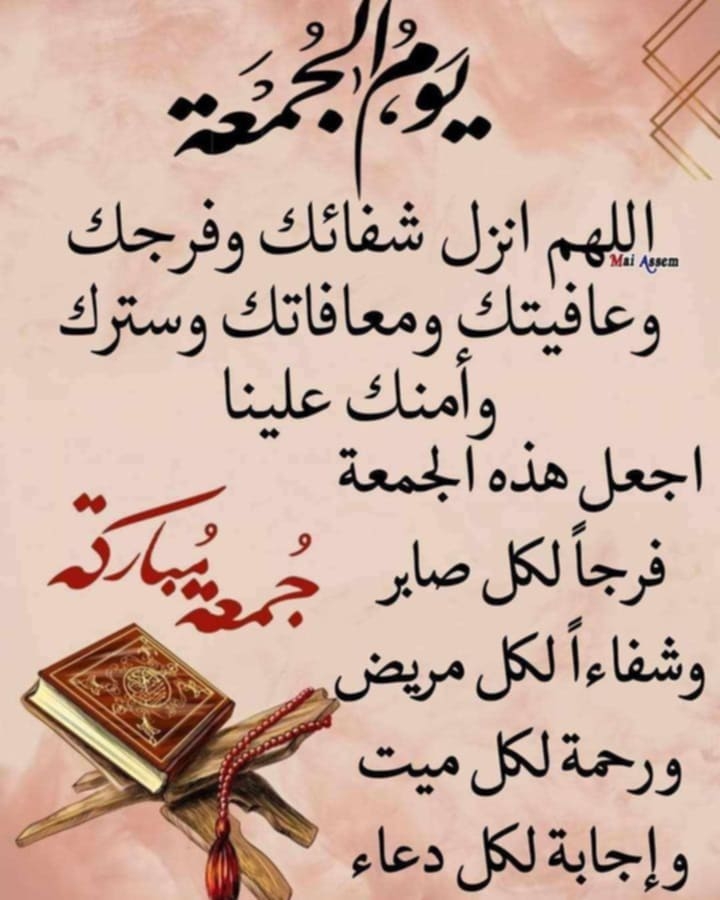 يَومُ الجُمْعَة
اللهم انزل شفائك وفرجك
Mai Assem
وعافيتك ومعافاتك وسترك
وأمنك علينا
اجعل هذه الجمعة
فرجاً لكل صابر
جُمعة مُباركة
وشفاءاً لكل مريض
ورحمة لكل ميت
وإجابة لكل دعاء